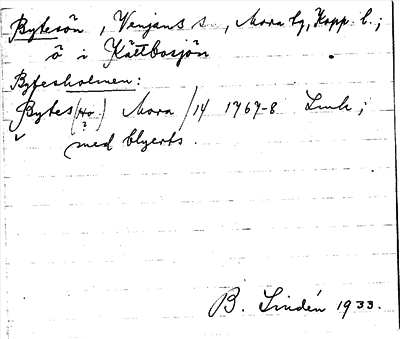 Bytesön, Venjans s., Mora tg, Kopp. l.;
ö i Kättbosjön.
Bytesholmen:
Bytes (Ho.) Mora /14 1767-8 Lmk;
?
med blyerts.
B. Lindén 1933.